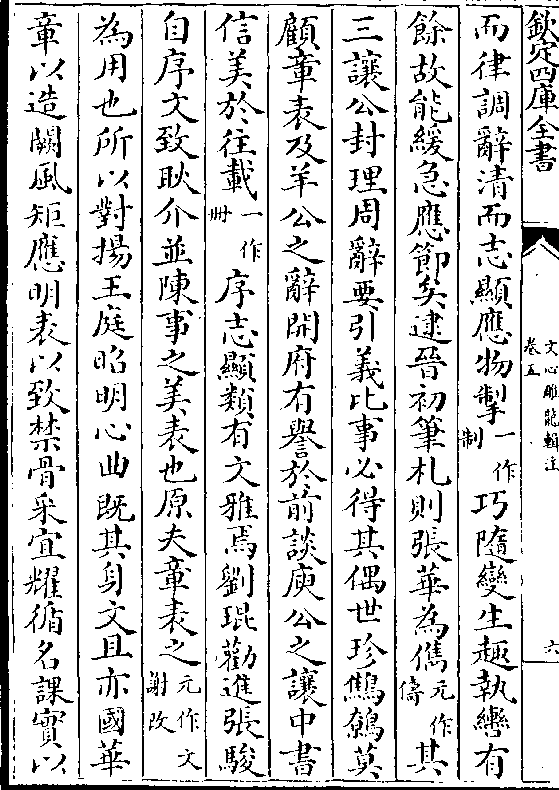 欽定四庫全書
文心雕龍輯注
卷五
六
而律調辭清而志顯應物掣一作制巧隨變生趣執轡有
餘故能緩急應節矣逮晉初筆札則張華為儁元作儔其
三讓公封理周辭要引義比事必得其偶世珍鷦鷯莫
顧章表及羊公之辭開府有譽於前談庾公之讓中書
信美於往載一作冊序志顯類有文雅焉劉琨勸進張駿
自序文致耿介並陳事之美表也原夫章表之元作文謝改
為用也所以對揚王庭昭明心曲既其身文且亦國華
章以造闕風矩應明表以致禁骨采宜耀循名課實以